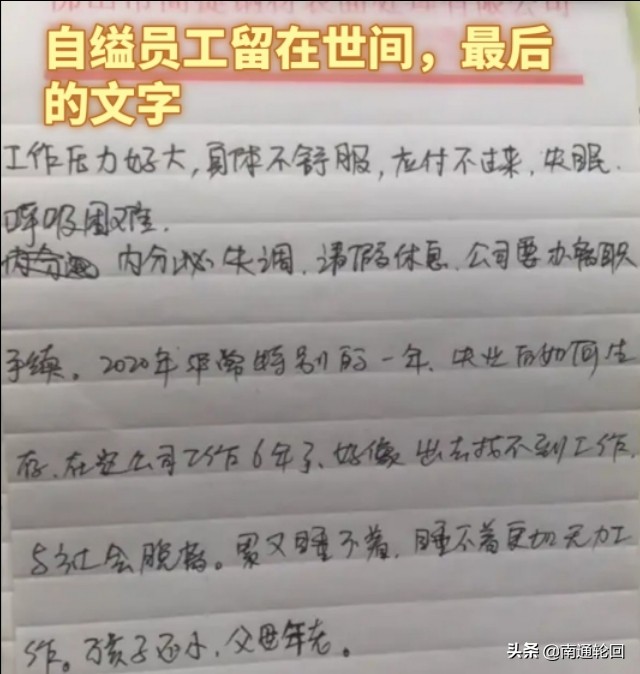 自缢员工留在世间，最后
的文字
工作压力好大，身体不舒服，应付不过来，失眠.
呼吸困难.
内分泌失调.请假休息.公司要办离职
手续。2020年非常特别的一年、失业后如何生
存.在这公司工作6年了、好像出去找不到工作，
与社会脱落。累又睡不着，睡不着更切无力工
作。孩子还小，父母年老。
头条 @南通轮回